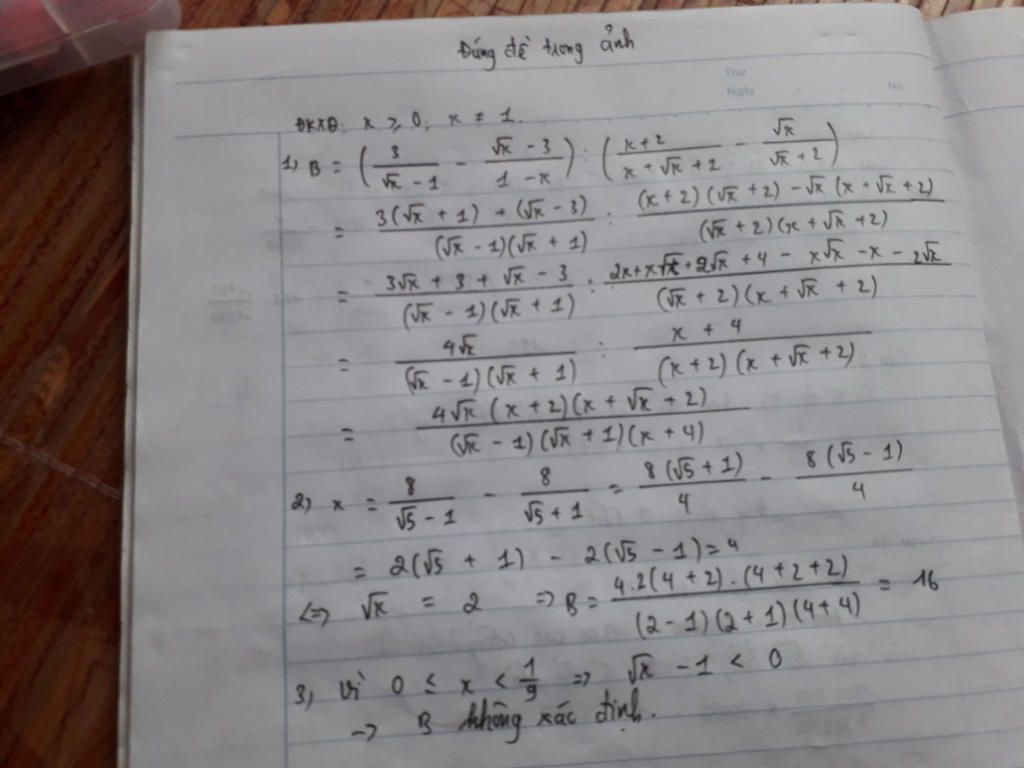 Đúng đề trong ảnh
Thứ
Ngày
No.
ĐKXĐ: x ≥ 0; x ≠ 1.
1, B = (3/(√x - 1) - (√x - 3)/(1 - x)) : ((x+2)/(x + √x + 2) - √x/(√x + 2))
= (3(√x + 1) + (√x - 3))/((√x - 1)(√x + 1)) : ((x + 2)(√x + 2) - √x(x + √x + 2))/((√x + 2)(x + √x + 2))
= (3√x + 3 + √x - 3)/((√x - 1)(√x + 1)) : (2x + x√x + 2√x + 4 - x√x - x - 2√x)/((√x + 2)(x + √x + 2))
= 4√x/((√x - 1)(√x + 1)) : (x + 4)/((x + 2)(x + √x + 2))
= (4√x (x + 2)(x + √x + 2))/((√x - 1)(√x + 1)(x + 4))
2, x = 8/(√5 - 1) - 8/(√5 + 1) = 8(√5 + 1)/4 - 8(√5 - 1)/4
= 2(√5 + 1) - 2(√5 - 1) = 4
<=> √x = 2 => B = (4.2(4+2).(4+2+2))/((2-1)(2+1)(4+4)) = 16
3, Vì 0 ≤ x < 1/9 => √x - 1 < 0
-> B không xác định.